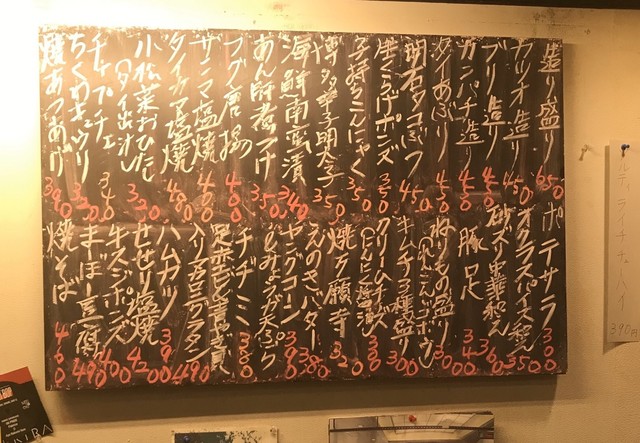 造り盛り 650
カツオ造り 450
ブリ造り 450
カンパチ造り 450
タイあぶり 450
明石タコぶつ 450
生こうげポンズ 350
子持ちこんにゃく 350
博多辛子明太子 350
海鮮南蛮漬 340
あん肝煮つけ 350
フグ唐揚 400
サンマ塩焼 400
タイカマ塩焼 400
小松菜おひたし
(タイ出汁) 320
チャプチェ 340
ちくわキュウリ 320
焼あつあげ 390
ポテサラ! 300
オクラスパイス和え 350
砂ズリ中華和え 360
豚足 340
ねりもの盛り 300
キムチ3種盛り 300
クリームチーズ 330
焼万願寺 320
えのきバター 380
ヤングコーン 390
チヂミ 380
ハムカツ 390
せせり塩焼 420
牛スジポンズ 400
まーぼー豆腐 490
焼そば 460
ライチチューハイ
390円